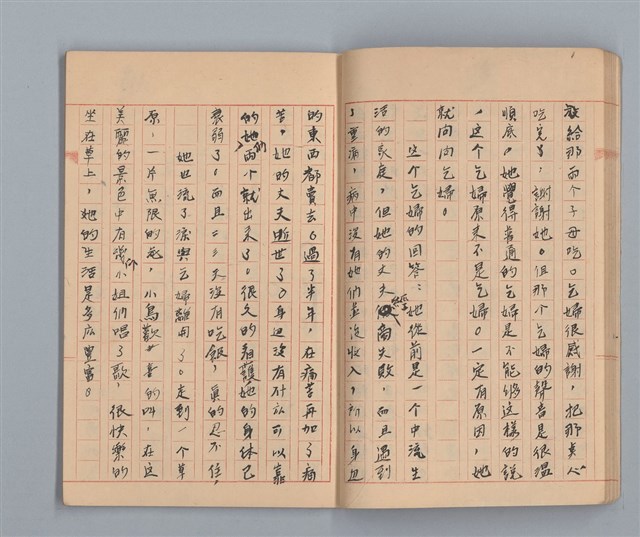 飯給那兩个子母吃。乞婦很感謝，把那美人
吃完了，謝謝她。但那个乞婦的聲音是很温
順底。她覺得普通的乞婦是不能够这樣的説
，这个乞婦原來不是乞婦。一定有原因，她
就问问乞婦。
这个乞婦的回答：她從前是一个中流生
活的家庭，但她的丈夫經商失敗，而且遇到
重病，病中没有她們並没收入，所以身边
的東西都賣去。過了半年，在病苦再加了病
苦，她的丈夫逝世了。身边没有什麽可以靠
的她們兩个就出來了。很久的看護她的身体已
衰弱了。而且二三天没有吃飯，真的忍不住，
她也流了淚與乞婦離開了。走到一个草
原，一片無限的花，小鳥歡喜的叫，在这
美麗的景色中有幾个小姐们唱了歌，很快樂的
坐在草上，她的生活是多麽豐富。